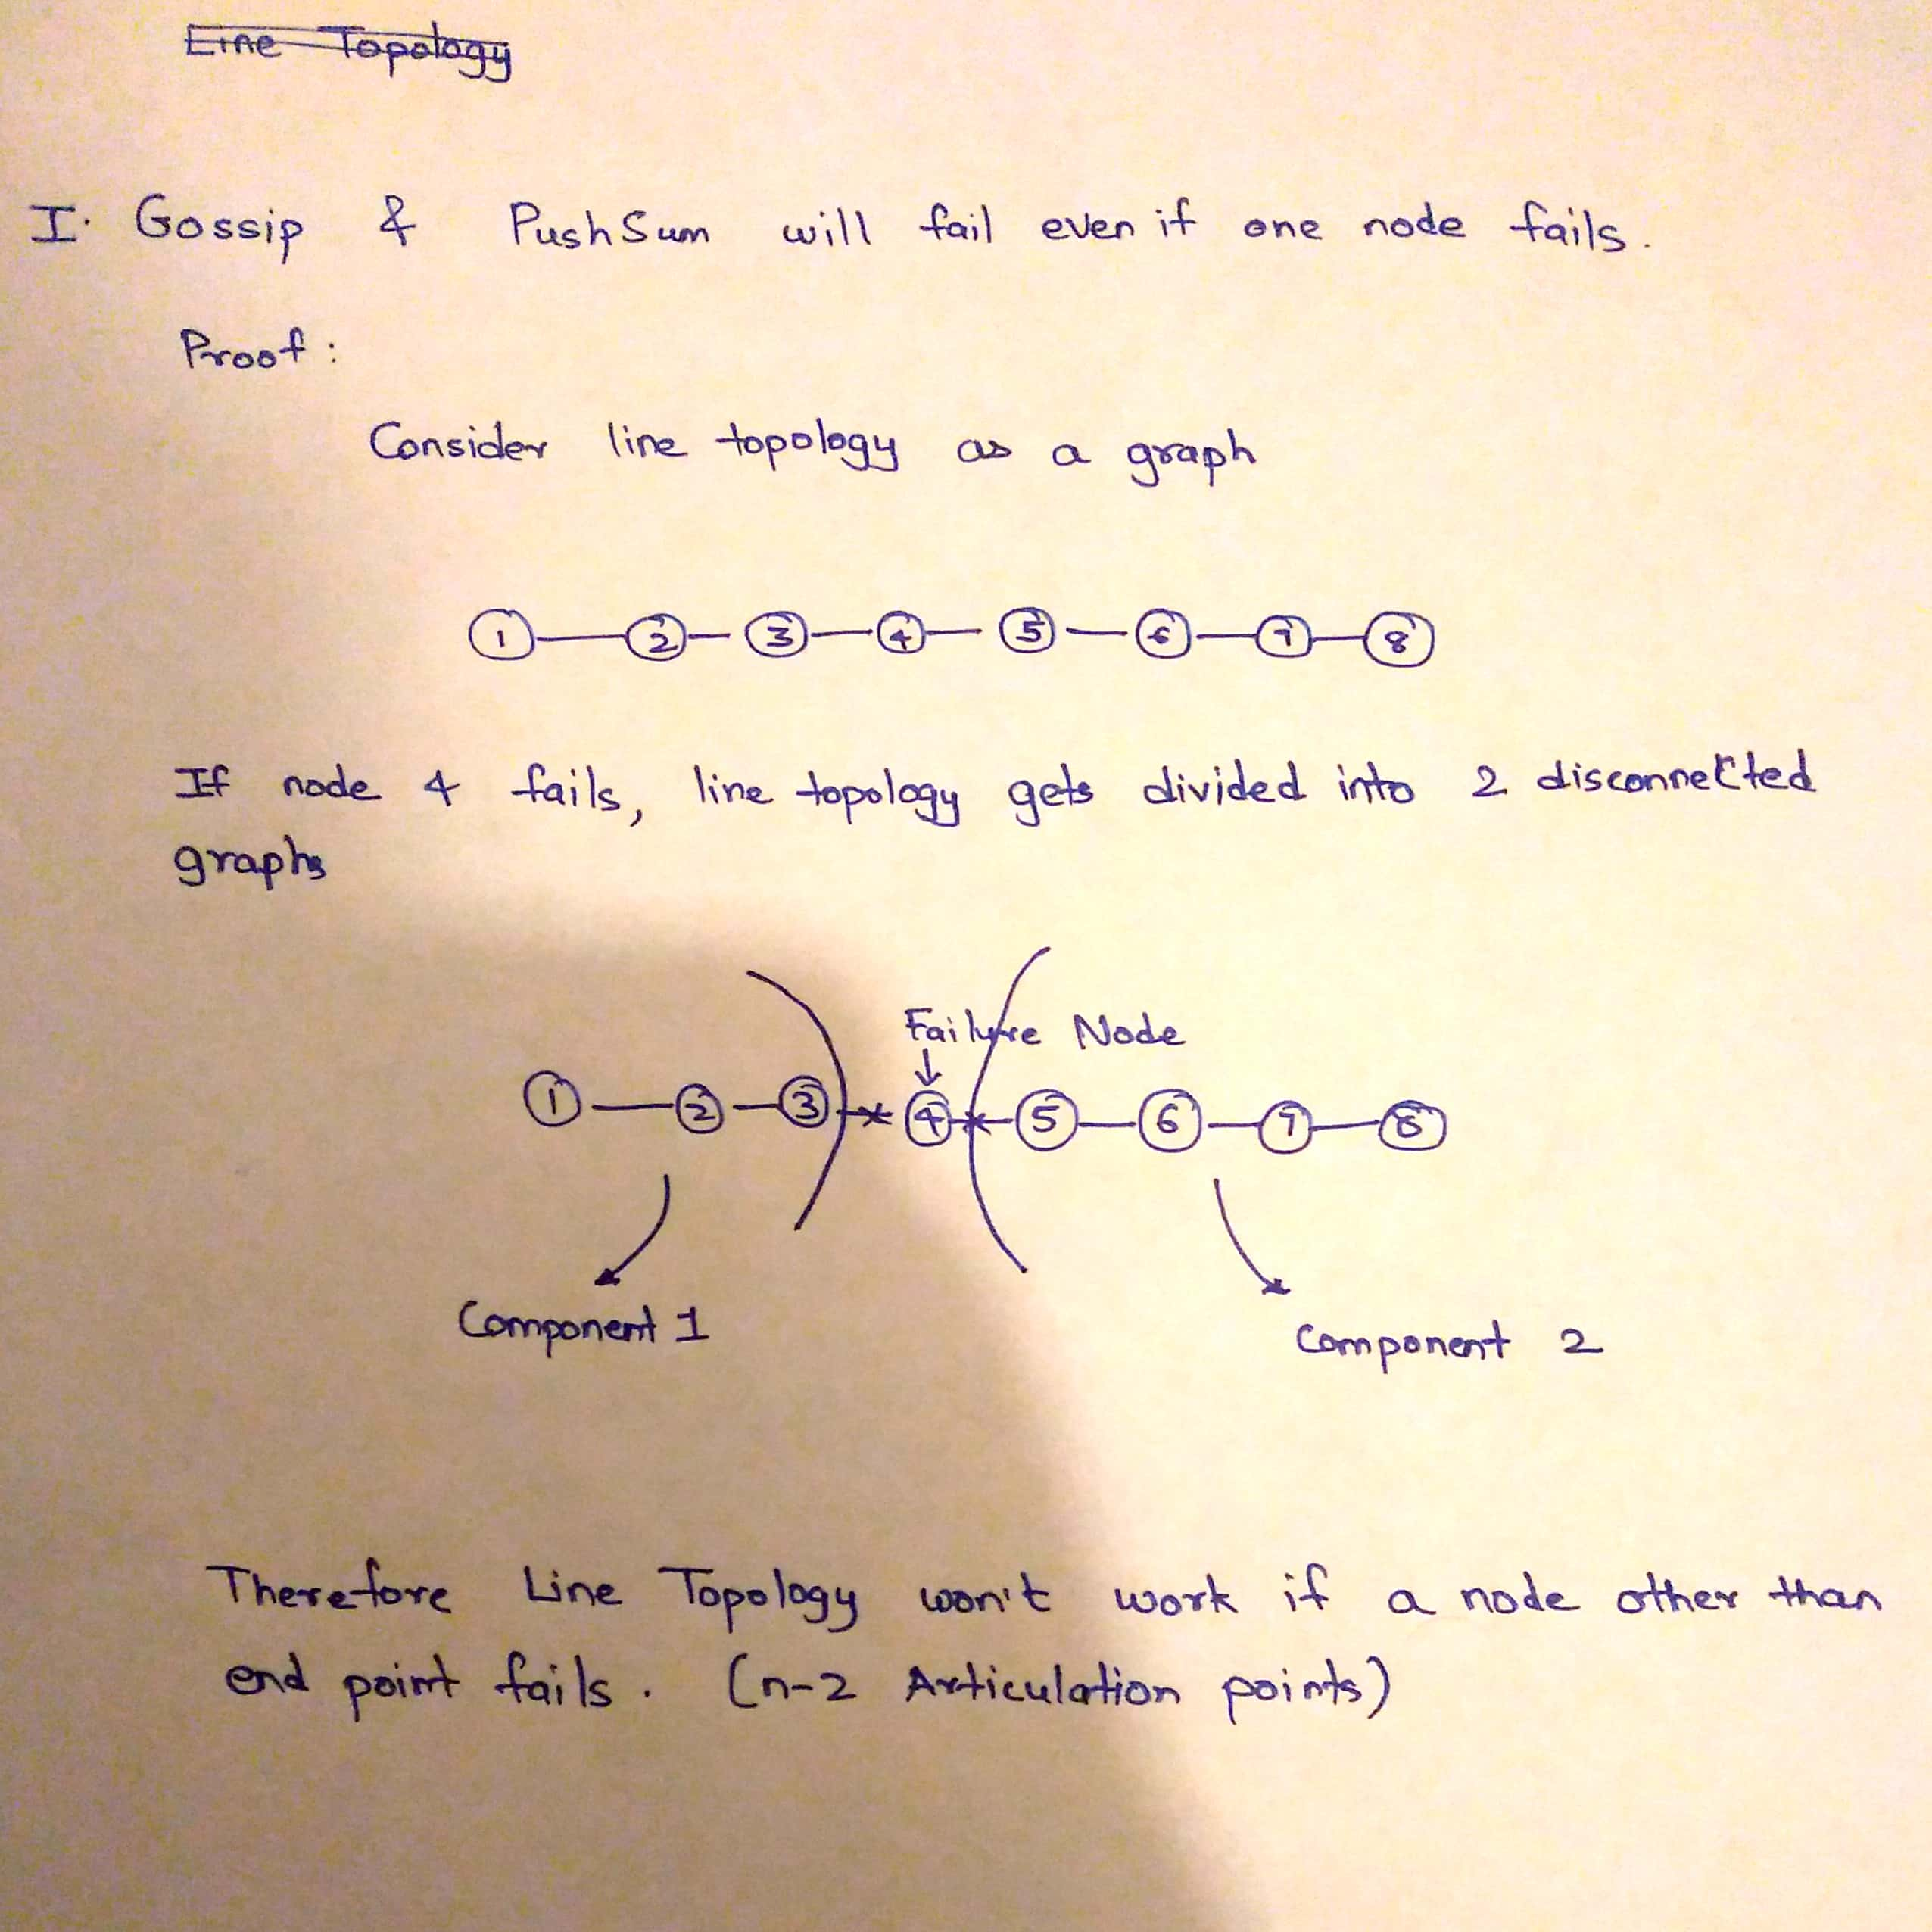 Line Topology
I. Gossip & PushSum will fail even if one node fails.
Proof :
Consider line topology as a graph
1 2 3 4 5 6 7 8
If node 4 fails, line topology gets divided into 2 disconnected
graphs
Failure Node
1 2 3 4 5 6 7 8
Component 1
Component 2
Therefore Line Topology won't work if a node other than
end point fails. (n-2 Articulation points)